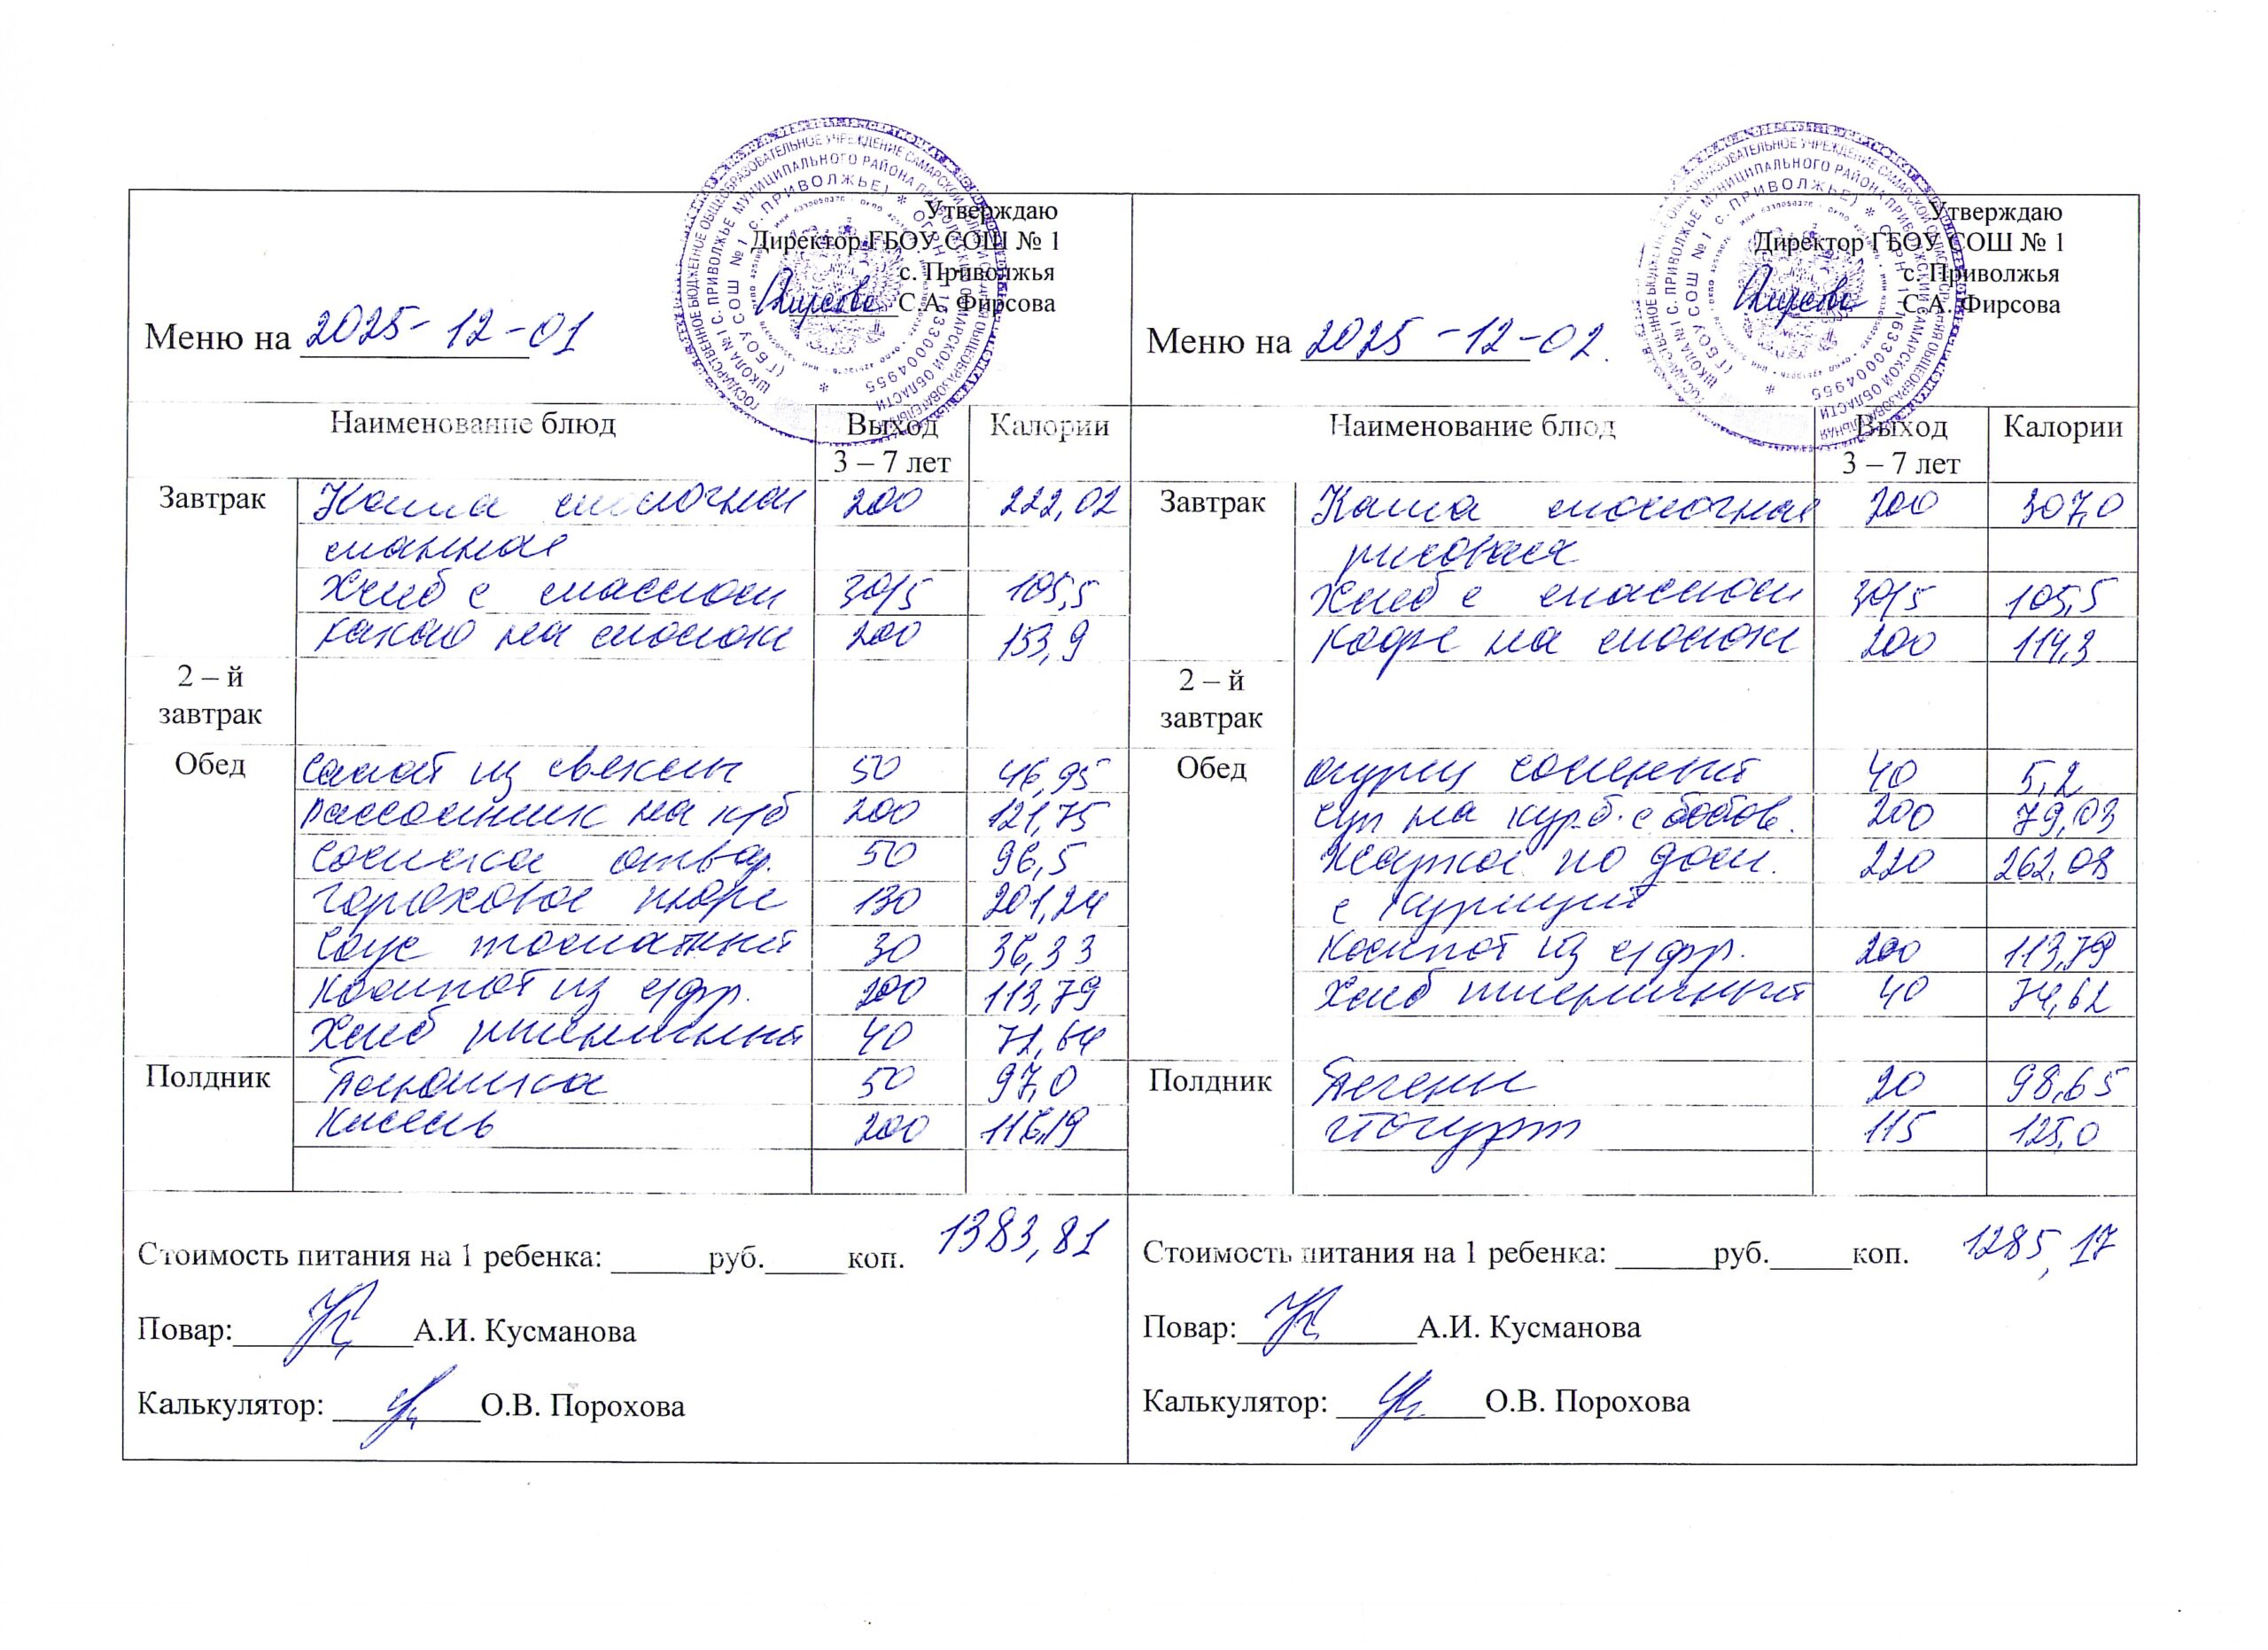 Утверждаю
Директор ГБОУ СОШ № 1
с. Приволжья
С.А. Фирсова
Меню на 2025-12-01
Наименование блюд Выход 3 – 7 лет Калории
Завтрак Каша молочная 200 222,02
манная
Хлеб с маслом 30/5 105,5
какао на молоке 200 153,9
2 – й завтрак
Обед Салат из свеклы 50 46,95
Рассольник на к/б 200 121,75
Сосиска отвар. 50 96,5
гороховое пюре 130 201,24
Соус томатный 30 36,33
Компот из с/фр. 200 113,79
Хлеб пшеничный 40 72,64
Полдник 50 97,0
Кисель 200 116,19
1383,81
Стоимость питания на 1 ребенка: ______руб._____коп.
Повар: А.И. Кусманова
Калькулятор: О.В. Порохова
Утверждаю
Директор ГБОУ СОШ № 1
с. Приволжья
С.А. Фирсова
Меню на 2025-12-02.
Наименование блюд Выход 3 – 7 лет Калории
Завтрак Каша молочная 200 307,0
рисовая
Хлеб с маслом 30/5 105,5
Кофе на молоке 200 114,3
2 – й завтрак
Обед огурец соленый 40 5,2
Суп на кур.б. с бобов. 200 79,03
Жаркое по дом. 220 262,08
с курицей
Компот из с/фр. 200 113,79
Хлеб пшеничный 40 74,62
Полдник Печенье 20 98,65
Йогурт 115 125,0
1285,17
Стоимость питания на 1 ребенка: ______руб._____коп.
Повар: А.И. Кусманова
Калькулятор: О.В. Порохова